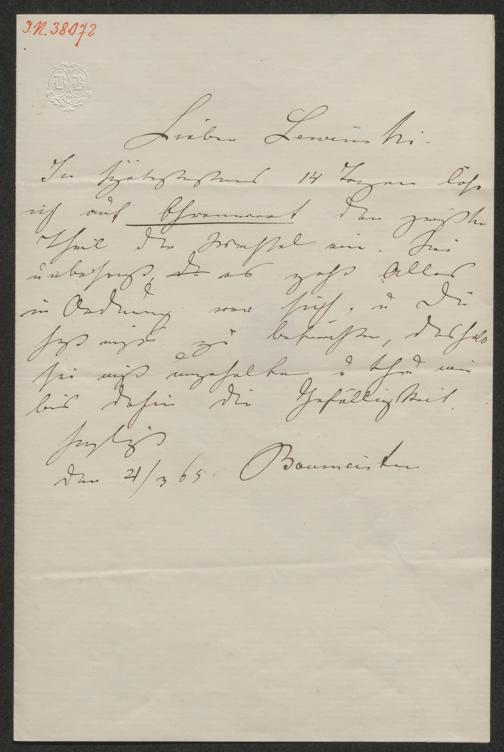 I.N. 38072
Lieber Lewinski.
In spätestens 14 Tagen löse
ich auf Ehrenwort den zweiten
Theil der Wechsel ein. Sei
unbesorgt, es geht Alles
in Ordnung vor sich, u Du
hast nichts zu befürchten, deshalb
sei nicht ungehalten u thu mir
bis dahin die Gefälligkeit.
Herzlichst
den 21/3 65. Baumeister